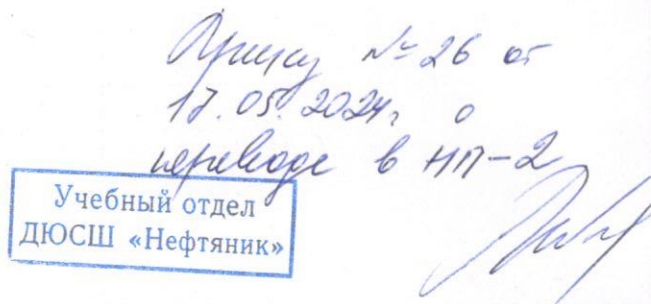 Приказ № 26 от
17.05.2024г о
переводе в НП-2
Учебный отдел
ДЮСШ «Нефтяник»